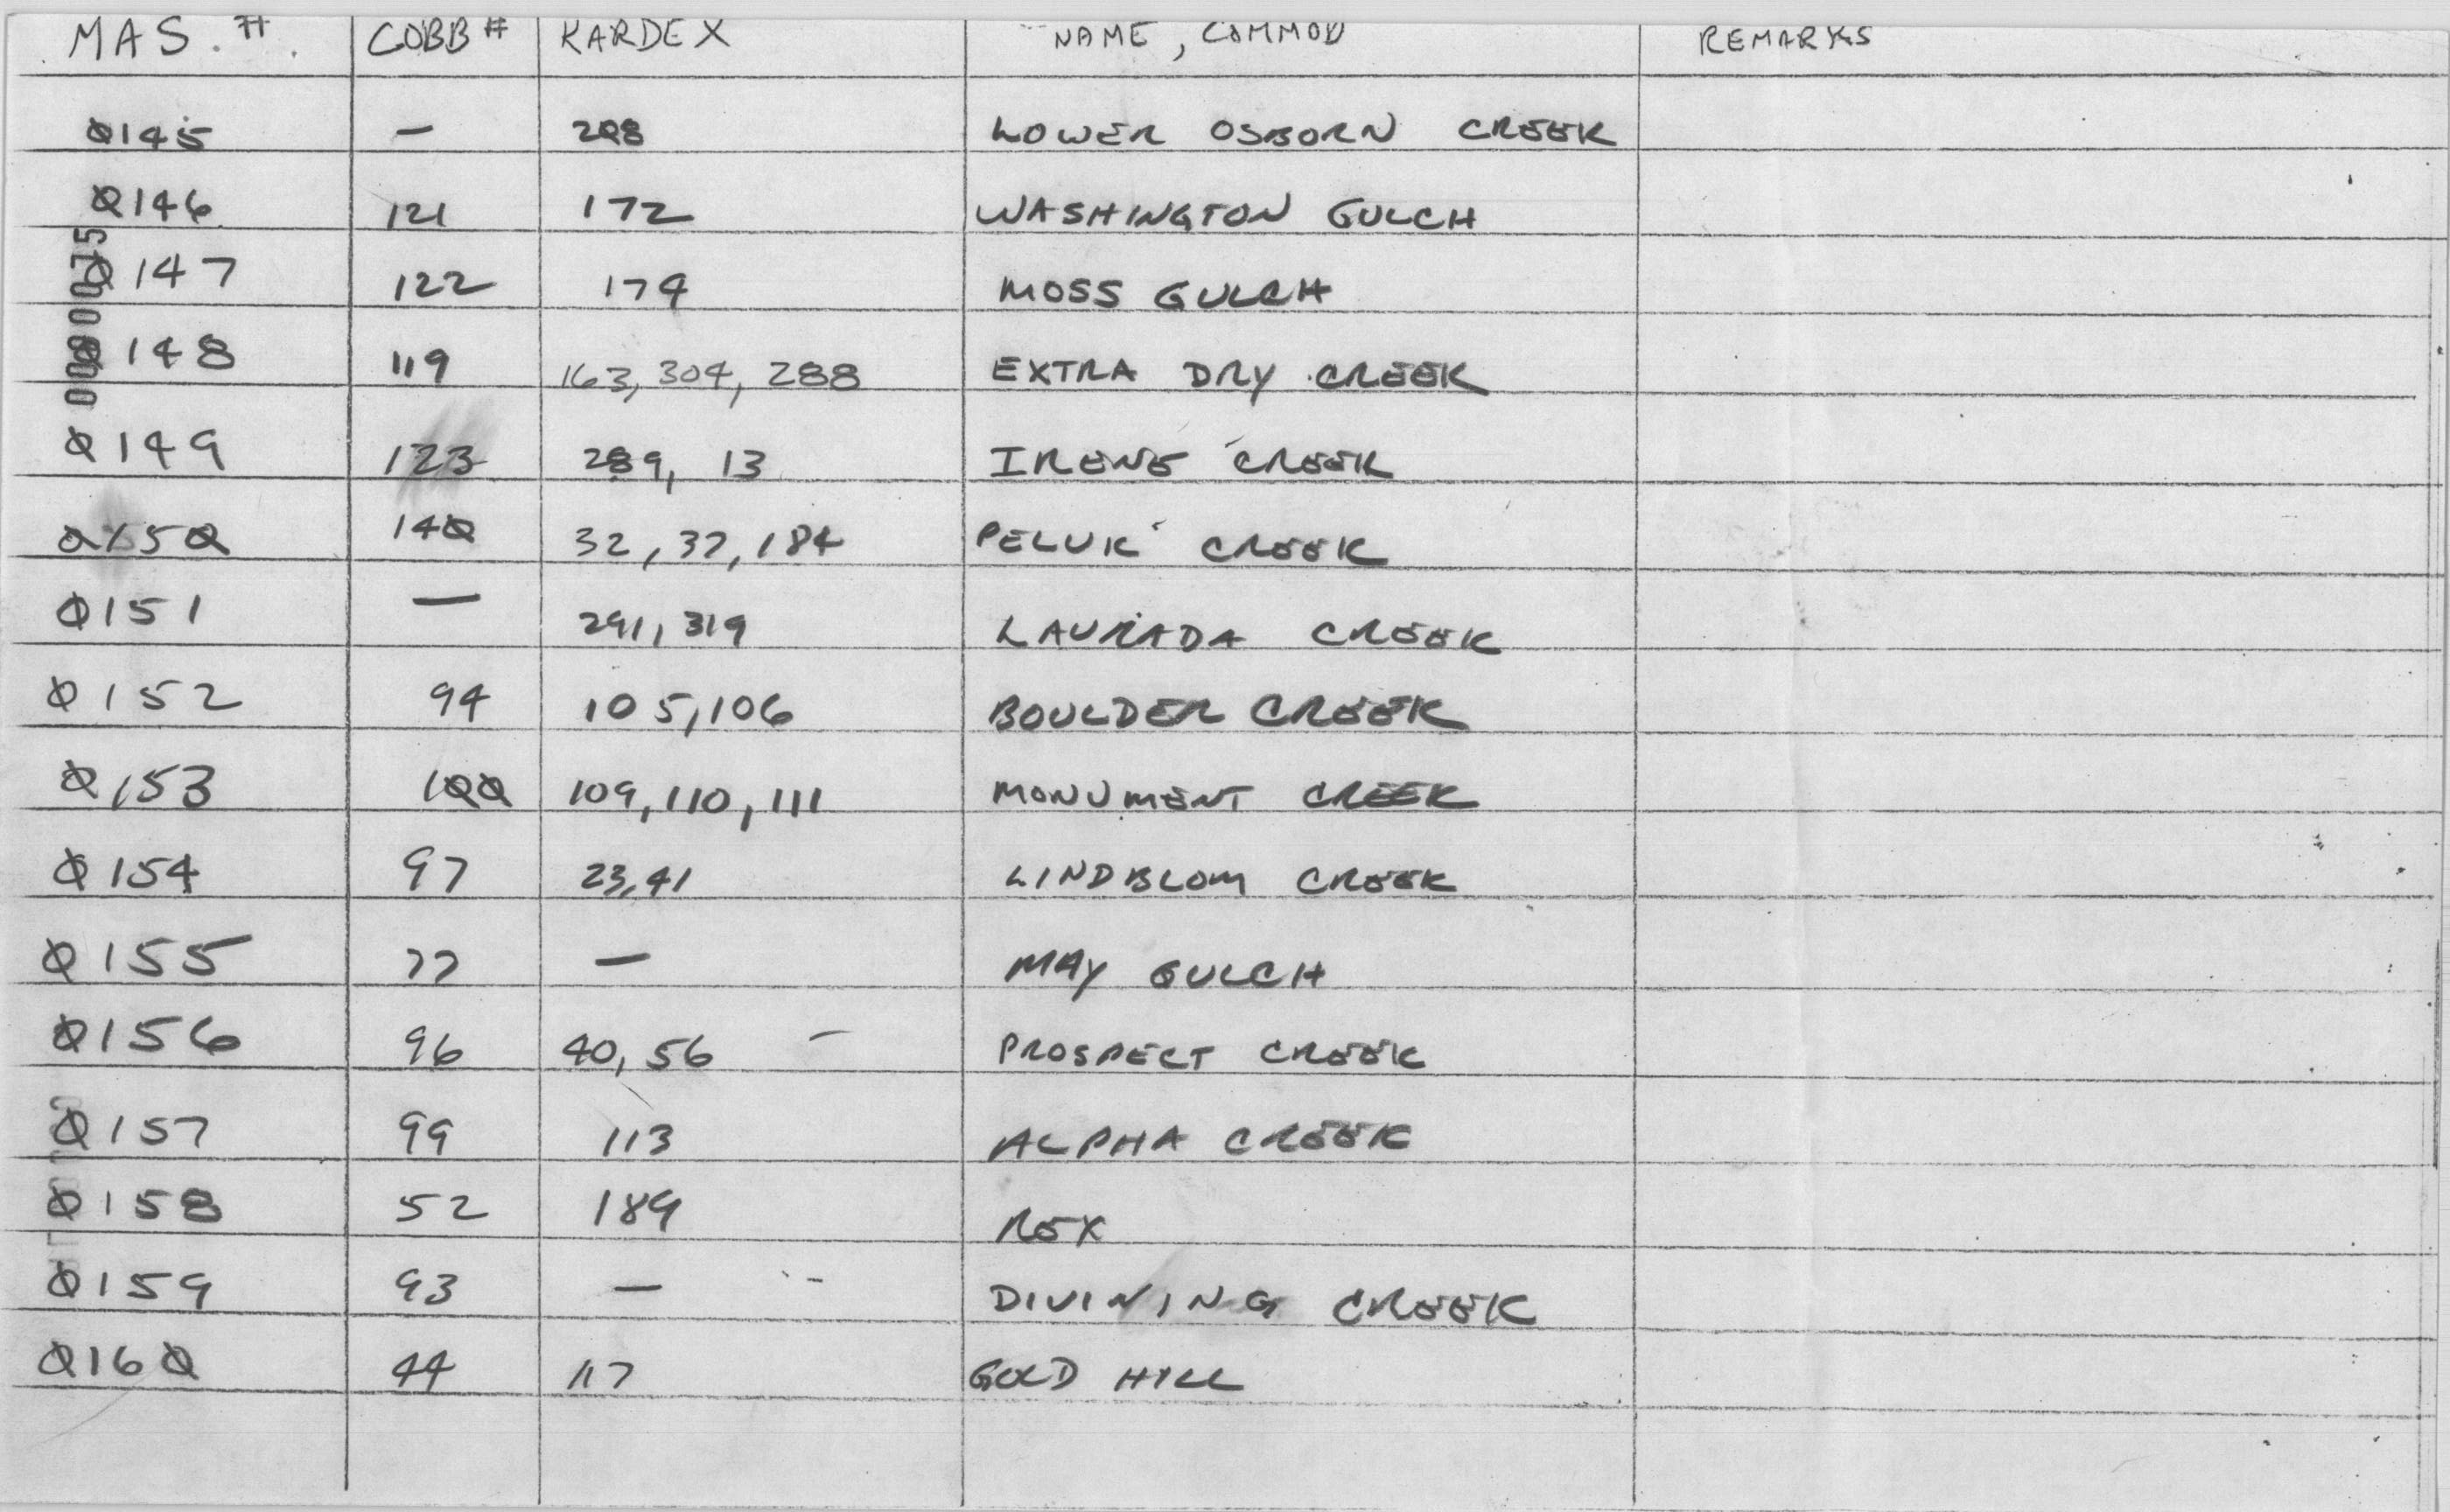 MAS. # COBB # KARDEX NAME, COMMOD REMARKS
0145 — 208 LOWER OSBORN CREEK
0146 121 172 WASHINGTON GULCH
0147 122 174 MOSS GULCH
0148 119 163, 304, 288 EXTRA DRY CREEK
0149 123 289, 13 IRENE CREEK
0150 140 32, 37, 184 PELUK CREEK
0151 — 291, 319 LAURADA CREEK
0152 94 105, 106 BOULDER CREEK
0153 100 109, 110, 111 MONUMENT CREEK
0154 97 23, 41 LINDBLOM CREEK
0155 77 — MAY GULCH
0156 96 40, 56 PROSPECT CREEK
0157 99 113 ALPHA CREEK
0158 52 189 REX
0159 93 — DIVINING CREEK
0160 44 117 GOLD HILL